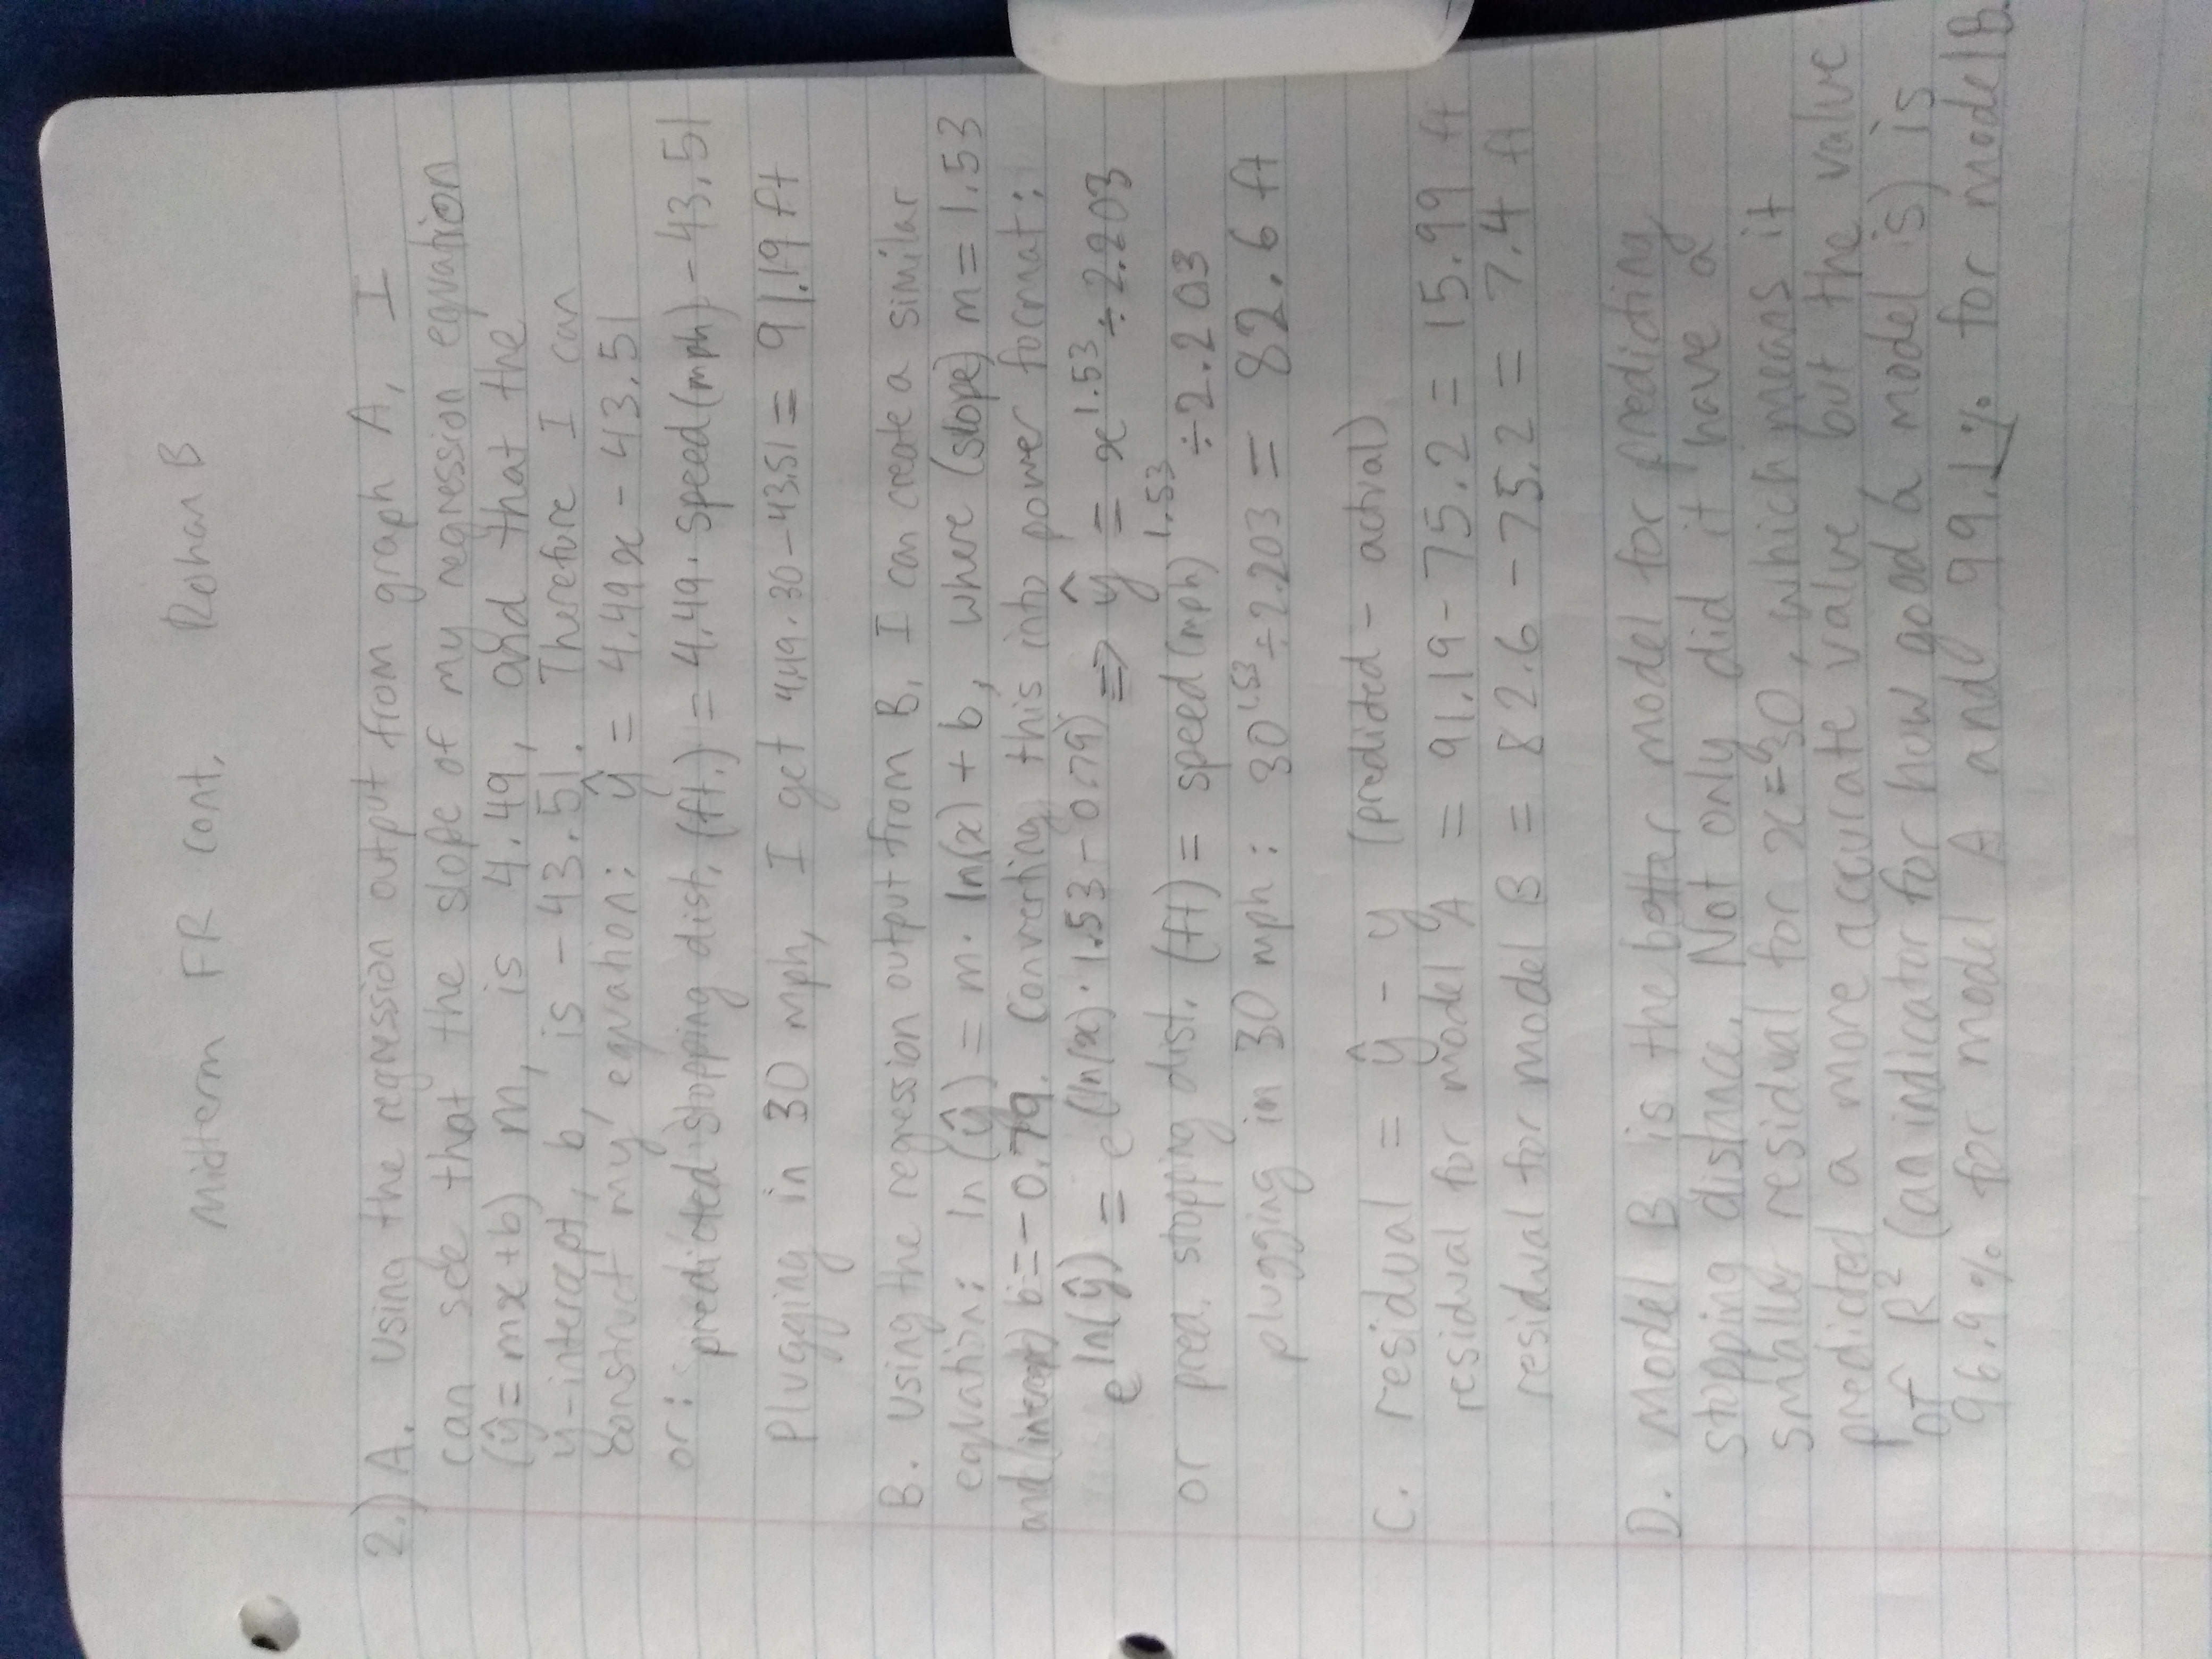 Midterm FR cont. Rohan B
2.) A. Using the regression output from graph A, I
can see that the slope of my regression equation
(ŷ = mx + b) m, is 4.49, and that the
y-intercept, b, is - 43.51. Therefore I can
construct my equation: ŷ = 4.49x - 43.51
or: predicted stopping dist. (ft.) = 4.49 · speed (mph) - 43.51
Plugging in 30 mph, I get 4.49 · 30 - 43.51 = 91.19 ft
B. Using the regression output from B, I can create a similar
equation: ln(ŷ) = m · ln(x) + b, where (slope) m = 1.53
and (intercept) b = - 0.79. Converting this into power format:
e^ln(ŷ) = e^(ln(x) · 1.53 - 0.79) ⇒ ŷ = x^1.53 ÷ 2.203
or pred. stopping dist. (ft) = speed (mph)^1.53 ÷ 2.203
plugging in 30 mph: 30^1.53 ÷ 2.203 = 82.6 ft
C. residual = ŷ - y (predicted - actual)
residual for model A = 91.19 - 75.2 = 15.99 ft
residual for model B = 82.6 - 75.2 = 7.4 ft
D. Model B is the better model for predicting
stopping distance. Not only did it have a
smaller residual for x = 30, which means it
predicted a more accurate value, but the value
of R² (an indicator for how good a model is) is
96.9% for model A and 99.1% for model B.